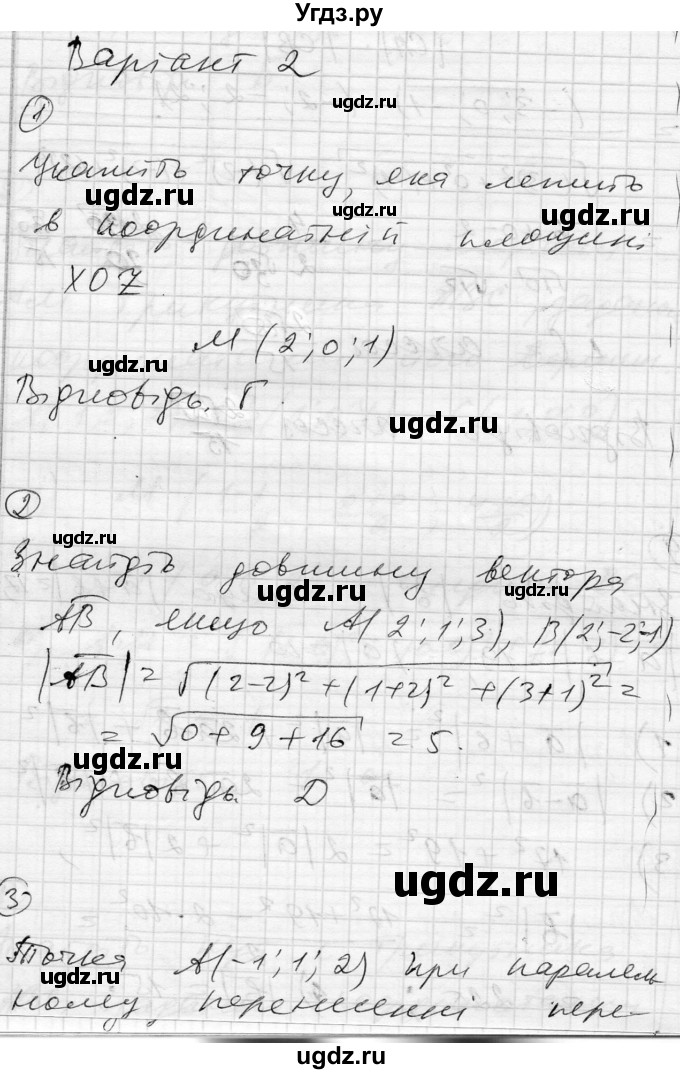 Угдз.ру
Варіант 2
ugdz.ru
1
Укажіть точку, яка лежить
ugdz.ru ugdz.ru ugdz.ru
в координатній площині
XOZ
M (2; 0; 1)
ugdz.ru
Відповідь. Г.
ugdz.ru
2
ugdz.ru
Знайдіть довжину вектора
ugdz.ru ugdz.ru
AB, якщо A(2; 1; 3), B(2; -2; -1)
|AB| = √((2-2)² + (1+2)² + (3+1)²) =
= √(0 + 9 + 16) = 5.
ugdz.ru ugdz.ru
Відповідь. D
ugdz.ru
3
Точка A(-1; 1; 2) при паралель
ugdz.ru ugdz.ru
ному перенесенні пере-
ugdz.ru
ugdz.ru